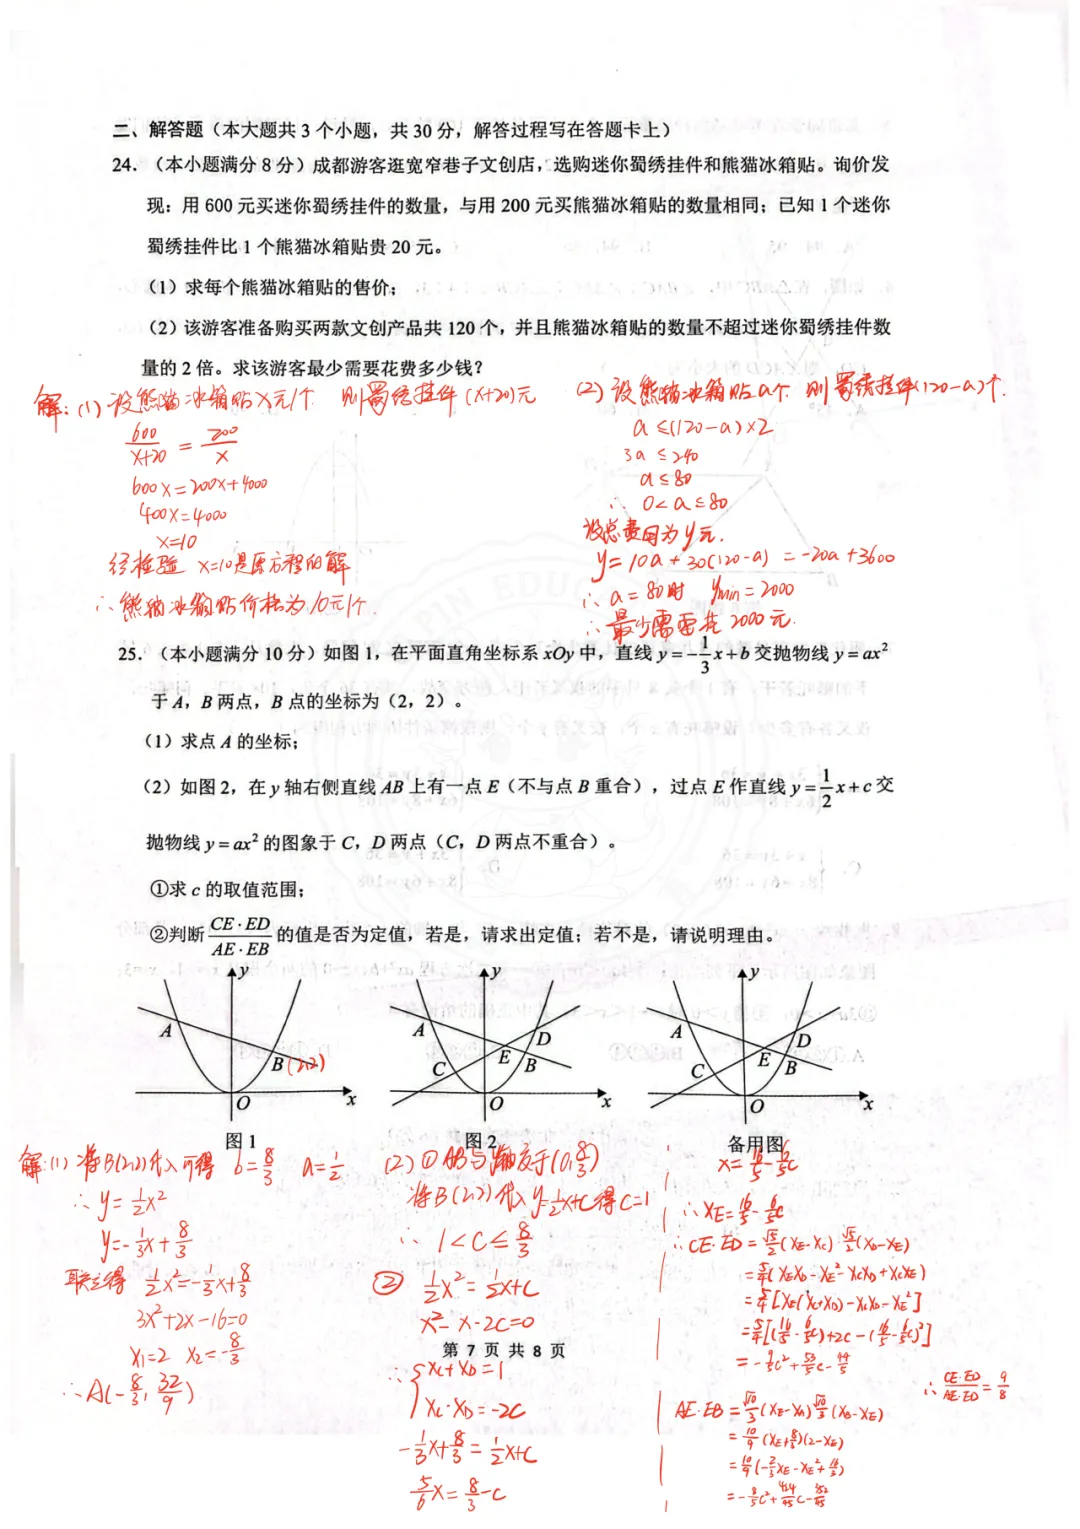 二、解答题（本大题共 3 个小题，共 30 分，解答过程写在答题卡上）
24.（本小题满分 8 分）成都游客逛宽窄巷子文创店，选购迷你蜀绣挂件和熊猫冰箱贴。询价发
现：用 600 元买迷你蜀绣挂件的数量，与用 200 元买熊猫冰箱贴的数量相同；已知 1 个迷你
蜀绣挂件比 1 个熊猫冰箱贴贵 20 元。
（1）求每个熊猫冰箱贴的售价；
（2）该游客准备购买两款文创产品共 120 个，并且熊猫冰箱贴的数量不超过迷你蜀绣挂件数
量的 2 倍。求该游客最少需要花费多少钱？
解：(1) 设熊猫冰箱贴x元/个 则蜀绣挂件(x+20)元
600/(x+20) = 200/x
600x=200x+4000
400x=4000
x=10
经检验 x=10是原方程的解
∴熊猫冰箱贴价格为10元/个.
(2) 设熊猫冰箱贴a个 则蜀绣挂件(120-a)个.
a≤(120-a)×2
3a≤240
a≤80
∴ 0<a≤80
设总费用为y元.
y=10a+30(120-a) =-20a+3600
∴ a=80时 ymin=2000
∴最少需要花2000元.
25.（本小题满分 10 分）如图 1，在平面直角坐标系 xOy 中，直线 y=-1/3x+b 交抛物线 y=ax²
于 A，B 两点，B 点的坐标为（2，2）。
（1）求点 A 的坐标；
（2）如图 2，在 y 轴右侧直线 AB 上有一点 E（不与点 B 重合），过点 E 作直线 y=1/2x+c 交
抛物线 y=ax² 的图象于 C，D 两点（C，D 两点不重合）。
①求 c 的取值范围；
②判断 CE·ED/AE·EB 的值是否为定值，若是，请求出定值；若不是，请说明理由。
y A B (2,2) O x
y A C E D B O x
y A C E D B O x
图 1
图 2
备用图
解:(1) 将B(2,2)代入可得 b=8/3 a=1/2
∴ y=1/2x²
y=-1/3x+8/3
联立得 1/2x²=-1/3x+8/3
3x²+2x-16=0
x₁=2 x₂=-8/3
∴A(-8/3, 32/9)
(2) ① AB与y轴交于(0,8/3)
将B(2,2)代入y=1/2x+c得c=1
∴ 1<c≤8/3
② 1/2x²=1/2x+c
x²-x-2c=0
第 7 页 共 8 页
∴{xC+xD=1
xC·xD=-2c
-1/3x+8/3=1/2x+c
5/6x=8/3-c
x=16/5-6/5c
∴xE=16/5-6/5c
∴CE·ED=√5/2(xE-xC)·√5/2(xD-xE)
=5/4(xExD-xE²-xCxD+xCxE)
=5/4[xE(xC+xD)-xCxD-xE²]
=5/4[(16/5-6/5c)+2c-(16/5-6/5c)²]
=-9/5c²+53/5c-44/5
AE·EB=√10/3(xE-xA)√10/3(xB-xE)
=10/9(xE+8/3)(2-xE)
=10/9(-2/3xE-xE²+16/3)
∴ CE·ED/AE·ED=9/8